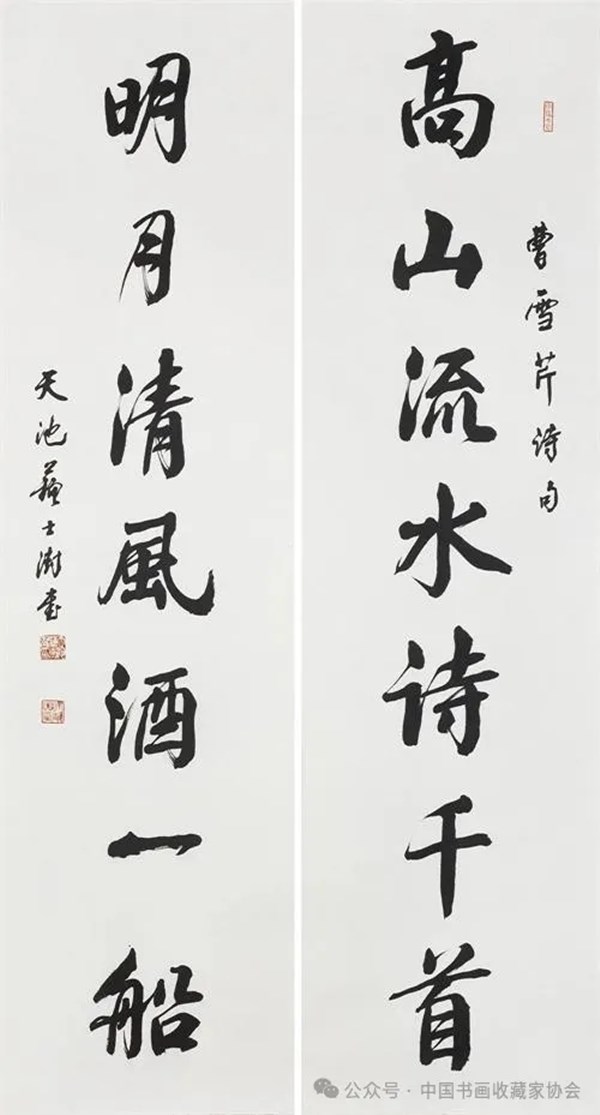 曹雪芹诗句
高山流水诗千首
明月清风酒一船
天池苏士澍书
公众号·中国书画收藏家协会